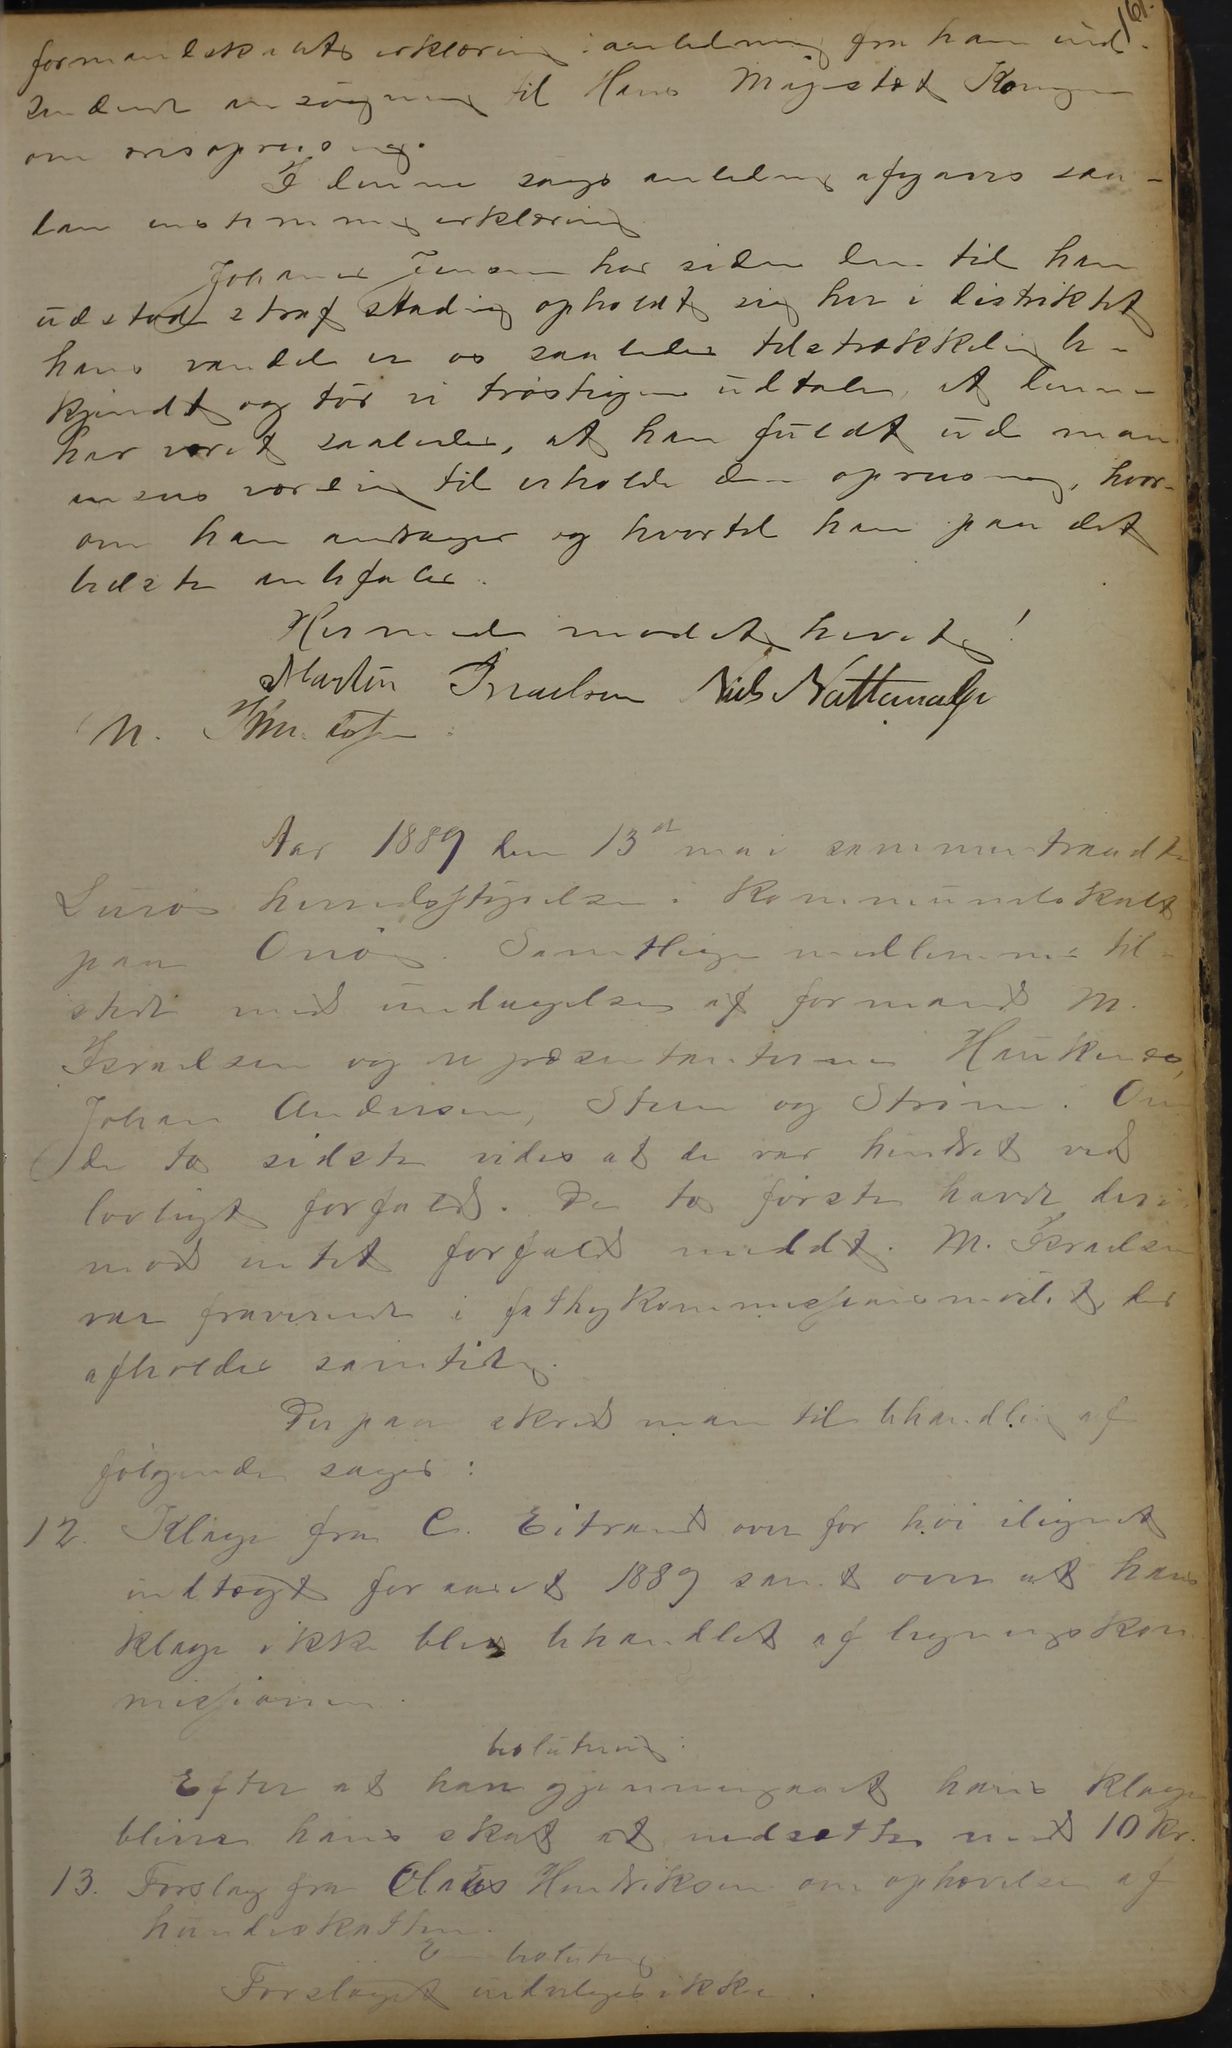 161.
formandskabets erklæring i anledning fra ham ind-
sendende ansøgning til Hans Majestæt Kongen
om æresopreisning.
I denne sags anledning afgaves saa-
dan enstemmig erklæring
Johannes Jensen har siden den til ham
udstod straf stadig opholdt sig her i distriktet
hans vandel er os saaledes tilstrækkelig be-
kjendt og tør vi trøstigen udtale, at denne
har været saaledes, at han fuldt ud maa
ansees værdig til erholde den opreisning, hvor-
om han andrager og hvortil han paa det
bedste anbefales.
Hermed mødet hævet!
Martin Israelsen Niels Nattemalje
N.
Aar 1889 den 13de mai sammentraadte
Lurø herredsstyrelse i Kommunelokalet
paa Onø. Samtlige medlemmer til-
stede med undtagelse af formand M.
Israelsen og repræsentanterne Haukenes,
Johan Andersen, Steen og Strøm. Om
de to sidste vides at de var hindret ved
lovligt forfald. De to første havde deri-
mod intet forfald meldt. M. Israelsen
var fraværende i fattigkommissionsmødet, der
afholdes samtidig.
Derpaa skred man til behandling af
følgende sager:
12. Klage fra C. Eitrand over for høi ilignet
indtægt for aaret 1889 samt over at hans
klage ikke blev behandlet af ligningskom
missionen.
beslutning:
Efter at have gjennemgaaet hans klage
bliver hans skat at nedsætte med 10 kr.
13. Forslag fra Olaus Hendriksen om ophævelse af
hundeskatten.
beslutning
Forslaget indvilges ikke.